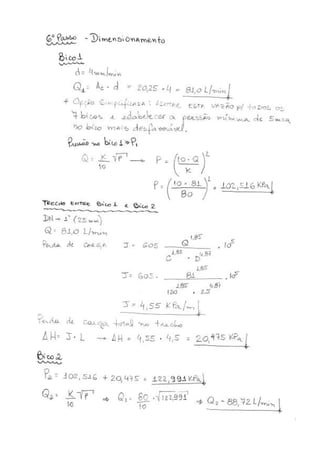 6º Passo - Dimensionamento
Bico 1
d= 4mm/min
Q1= Ac . d = 20,25 . 4 = 81,0 L/min
+ Opção simplificada: adotar esta vazão p/ todos os
7 bicos e estabelecer a pressão mínima de 5mca
no bico mais desfavorável.
Pressão no bico 1 → P1
Q = K √P / 10 → P = (10 . Q / K)²
P = (10 . 81 / 80)² = 102,516 KPa
Trecho entre Bico 1 e Bico 2
DN → 1" (25 mm)
Q = 81,0 L/min
Perda de Carga J = 605 Q^1,85 / (C^1,85 . D^4,87) . 10^5
J = 605 . 81^1,85 / (120^1,85 . 25^4,87) . 10^5
J = 4,55 KPa/m
Perda de carga total no trecho
ΔH = J . L → ΔH = 4,55 . 4,5 = 20,475 KPa
Bico 2
P2 = 102,516 + 20,475 = 122,991 KPa
Q2 = K √P / 10 → Q2 = 80 . √122,991 / 10 → Q2 = 88,72 L/min